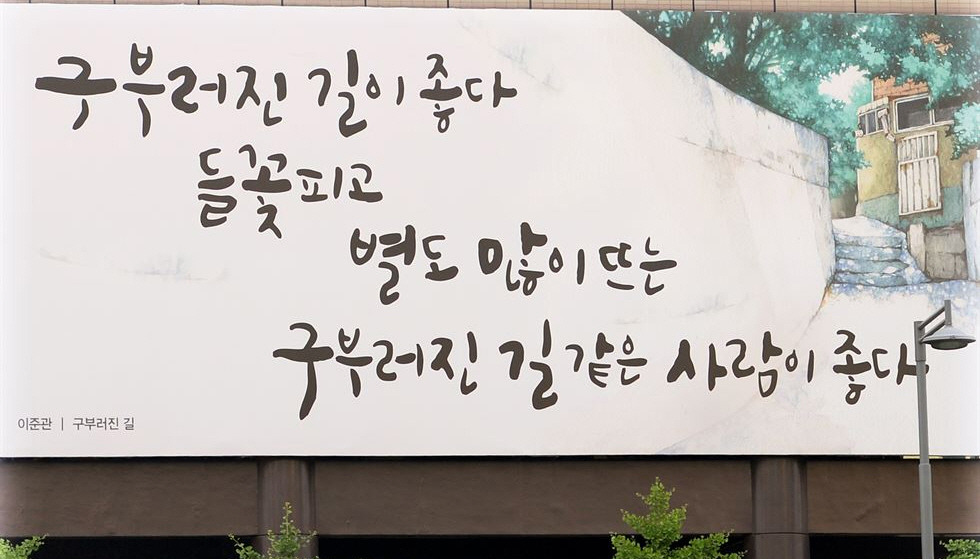 구부러진 길이 좋다
들꽃피고
별도 많이 뜨는
구부러진 길 같은 사람이 좋다
이준관 | 구부러진 길